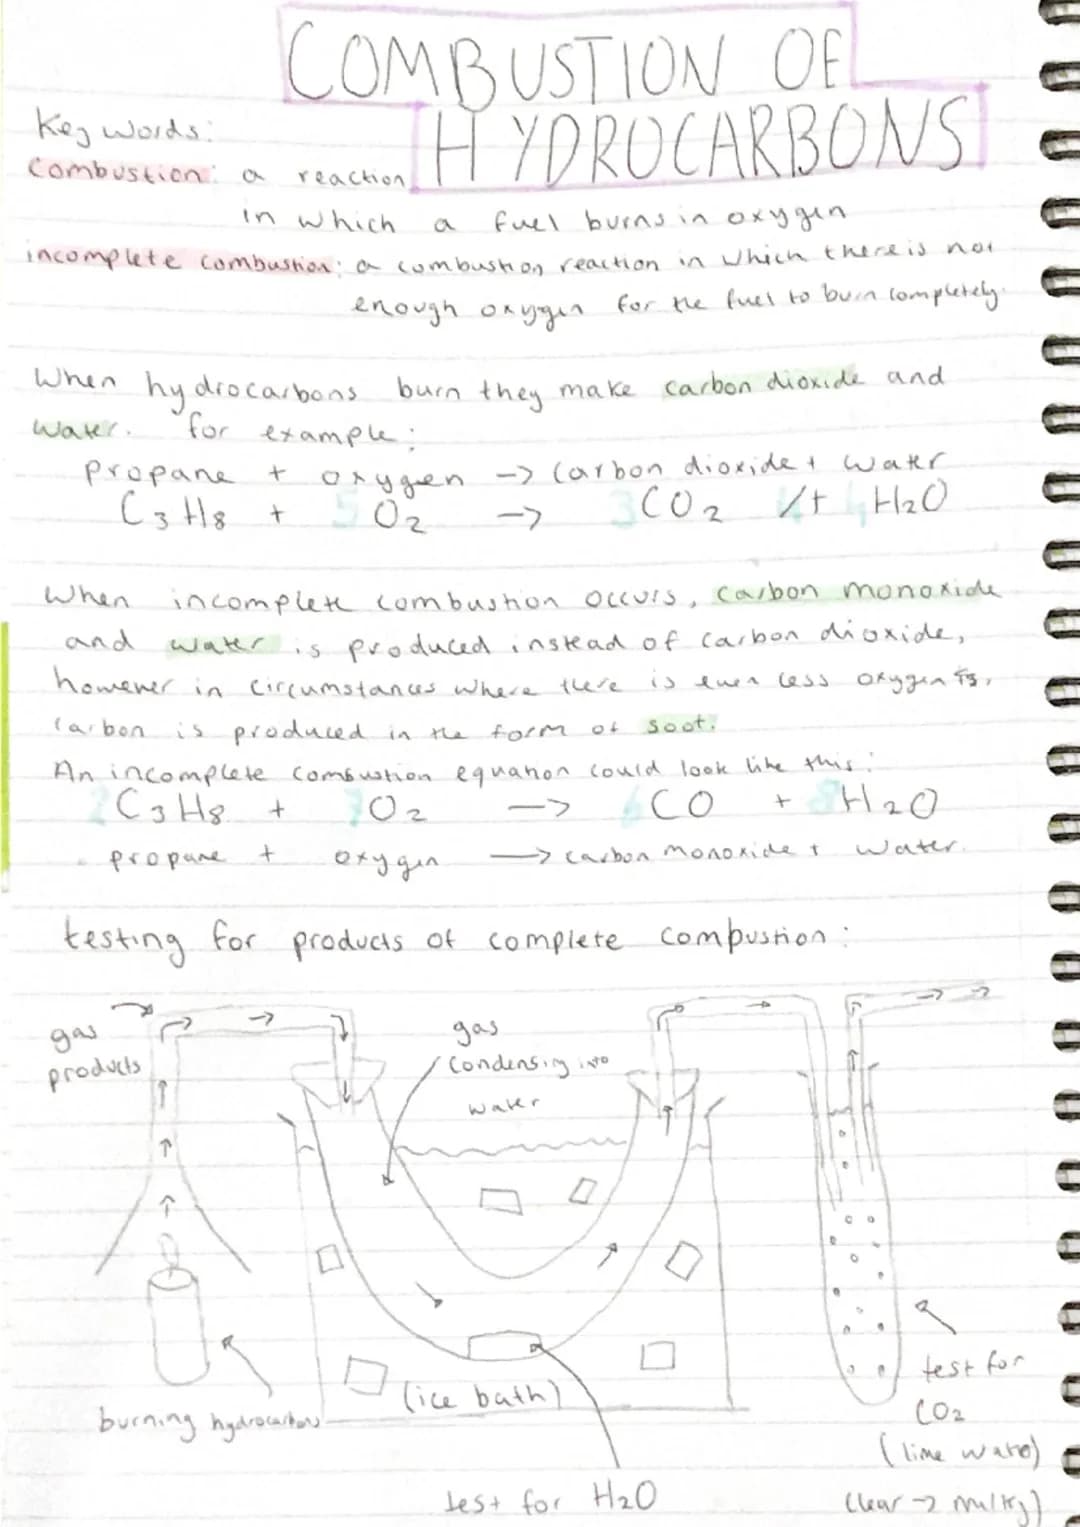 COMBUSTION OF
HYDROCARBONS
Key words:
combustion: a reaction
in which a fuel burns in oxygen
incomplete combustion: a combustion reaction in which there is not
enough oxygen for the fuel to burn completely.
When hydrocarbons burn they make carbon dioxide and
water. for example:
propane + oxygen -> carbon dioxide + water
C3H8 + 5 O2 -> 3 CO2 + 4 H2O
When incomplete combustion occurs, carbon monoxide
and water is produced instead of carbon dioxide,
however in circumstances where there is even less oxygen
carbon is produced in the form of soot.
An incomplete combustion equation could look like this:
2 C3H8 + 7 O2 -> 6 CO + 8 H2O
propane + oxygen -> carbon monoxide + water.
testing for products of complete combustion:
gas
products
gas
condensing into
water
burning hydrocarbon
(ice bath)
test for H2O
test for
CO2
(lime water)
(clear -> milky)